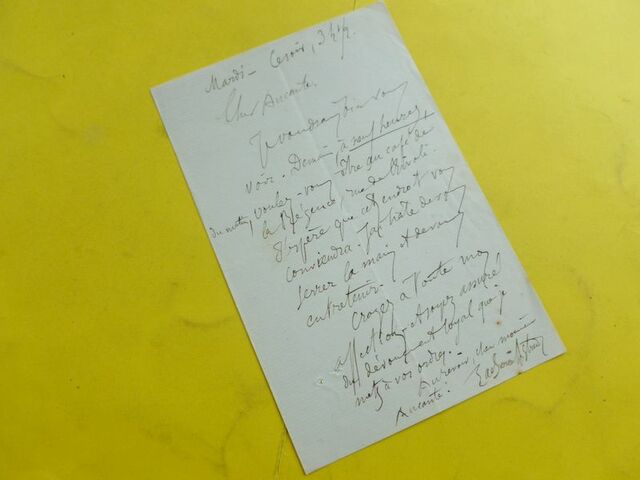 Mardi - Ce soir, 3 h 1/2
Cher Aucante.
Je voudrais bien vous
voir. Demain à neuf heures,
du matin, voulez-vous être au café de
la Régence, rue de Rivoli.
J'espère que cet endroit vous
conviendra. J'ai hâte de vous
serrer la main et de vous
entretenir.
Croyez à toute mon
affection et soyez assuré
du dévouement loyal que je
mets à vos ordres.
Au revoir, cher monsieur
Aucante.